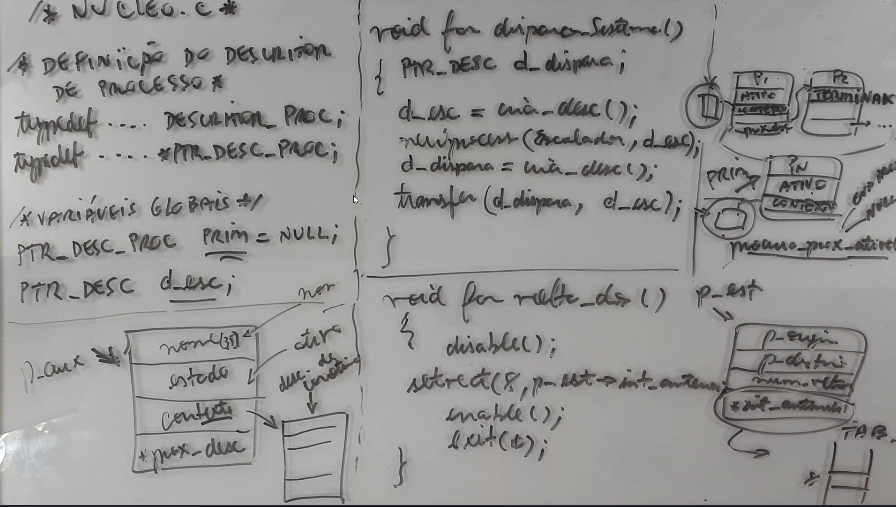 /* NUCLEO.C *
/* DEFINIÇÃO DO DESCRITOR
DE PROCESSO *
typedef .... DESCRITOR_PROC;
typedef .... *PTR_DESC_PROC;
/*VARIÁVEIS GLOBAIS*/
PTR_DESC_PROC PRIM = NULL;
PTR_DESC d_esc;
p_aux
nome[35]
estado
contexto
*prox_desc
ativo
desc. de
void far dispara_sistema()
{ PTR_DESC d_dispara;
d_esc = cria_desc();
newprocess (escalador, d_esc);
d_dispara = cria_desc();
transfer (d_dispara, d_esc);
}
void far volta_dos ()
{
disable();
setvect(8, p_est->int_anterior
enable();
exit(0);
}
P1
ATIVO
CONTEXTO
P2
TERMINADO
...
PRIM
PN
ATIVO
CONTEXTO
NULL
procura_prox_ativo(
p_est
p_origin
p_destin
num_vetor
*int_anterior
TAB.
8